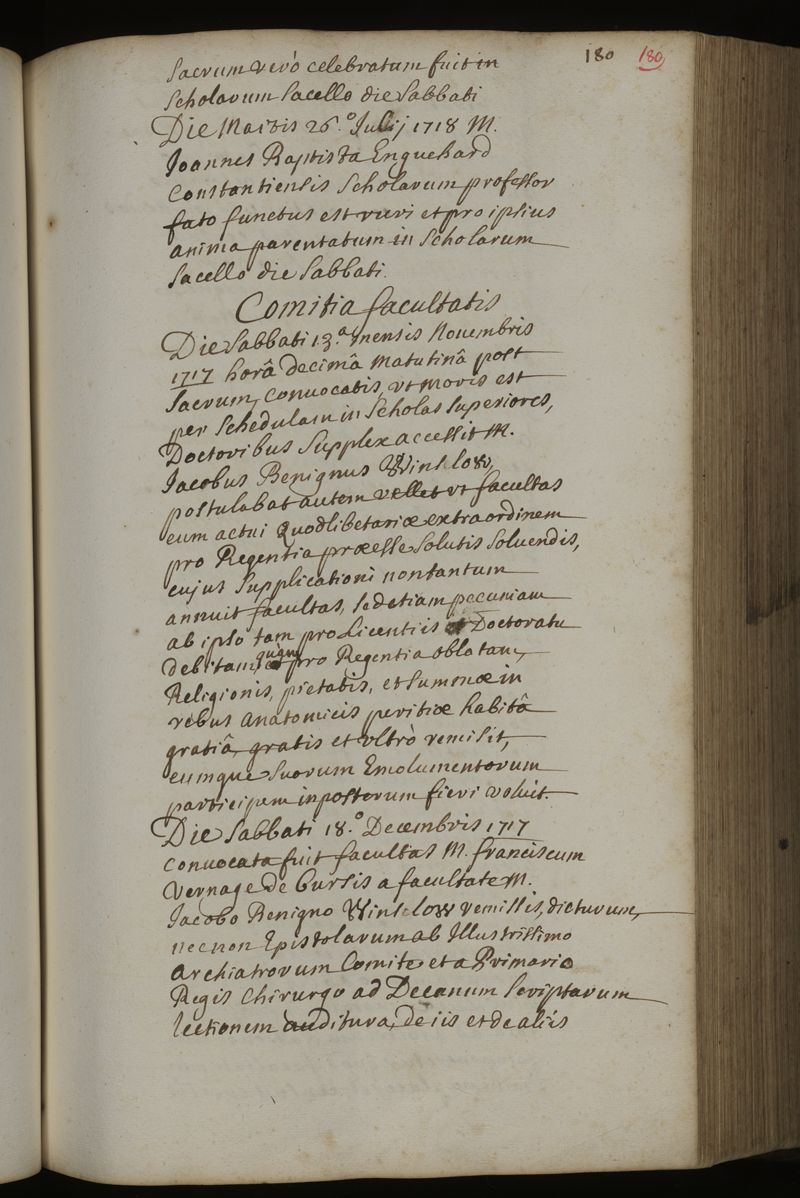 180 180
Sacrum verò celebratum fuit in
Scholarum Sacello die Sabbati
Die Martis 26.º Julij 1718 M.
Joannes Baptista Enguehard
Constantiensis Scholarum professor
fato functus est ruri et pro ipsius
anima parentatum in Scholarum
Sacello die Sabbati.
Comitia facultatis
Die Sabbati 13.ª mensis Novembris
1717 horâ decimâ matutinâ post
Sacrum, convocatis, ut moris est
per Schedulam in Scholas Superiores,
Doctoribus Supplex accessit M.
Jacobus Benignus Winslow,
postulabat autem vellet ut facultas
eum actui Quodlibetariæ extraordinem
pro Regentia præesse solutis solvendis,
cujus Supplicationi non tantum
annuit facultas, sed etiam pecuniam
ab ipso tam pro Licentiis et Doctoratu
debitam, quàm pro Regentia oblatam,
Religionis, pietatis, et summæ in
rebus anatomicis peritiæ habitâ
gratiâ, gratis et ultrò remisit,
eumque suorum Emolumentorum
participem in posterum fieri voluit.
Die Sabbati 18.º Decembris 1717
convocata fuit facultas M. franciscum
Vernage de bursis a facultate M.
Jacobo Benigno Winslow remissis, dicturum,
necnon Epistolarum ab Illustrissimo
Archiatrorum Comite et a Primario
Regis Chirurgo ad Decanum scriptarum
lectionem auditura, de iis et de aliis